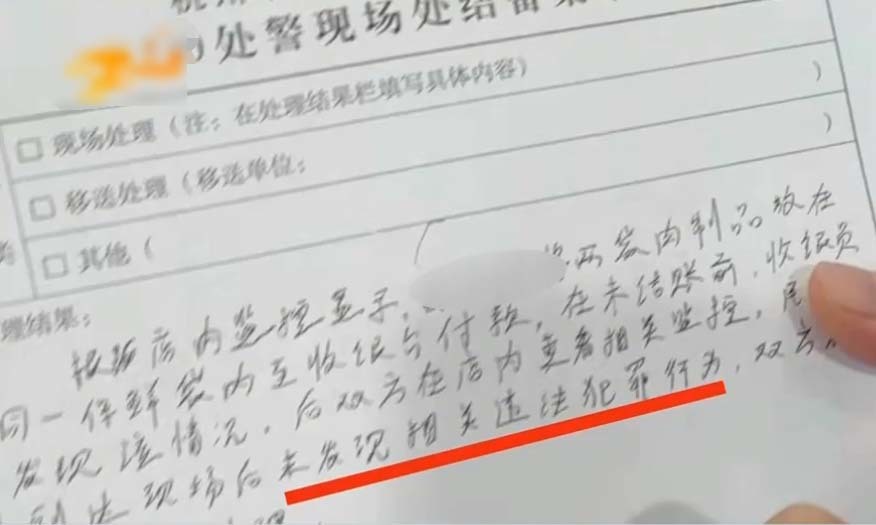 处警现场处结备案
□ 现场处理（注：在处理结果栏填写具体内容）
□ 移送处理（移送单位： ）
□ 其他（
理结果：
根据店内监控显示， 将两袋肉制品放在
同一保鲜袋内至收银台付款，在未结账前，收银员
发现该情况，后双方在店内查看相关监控，民
到达现场后未发现相关违法犯罪行为，双方